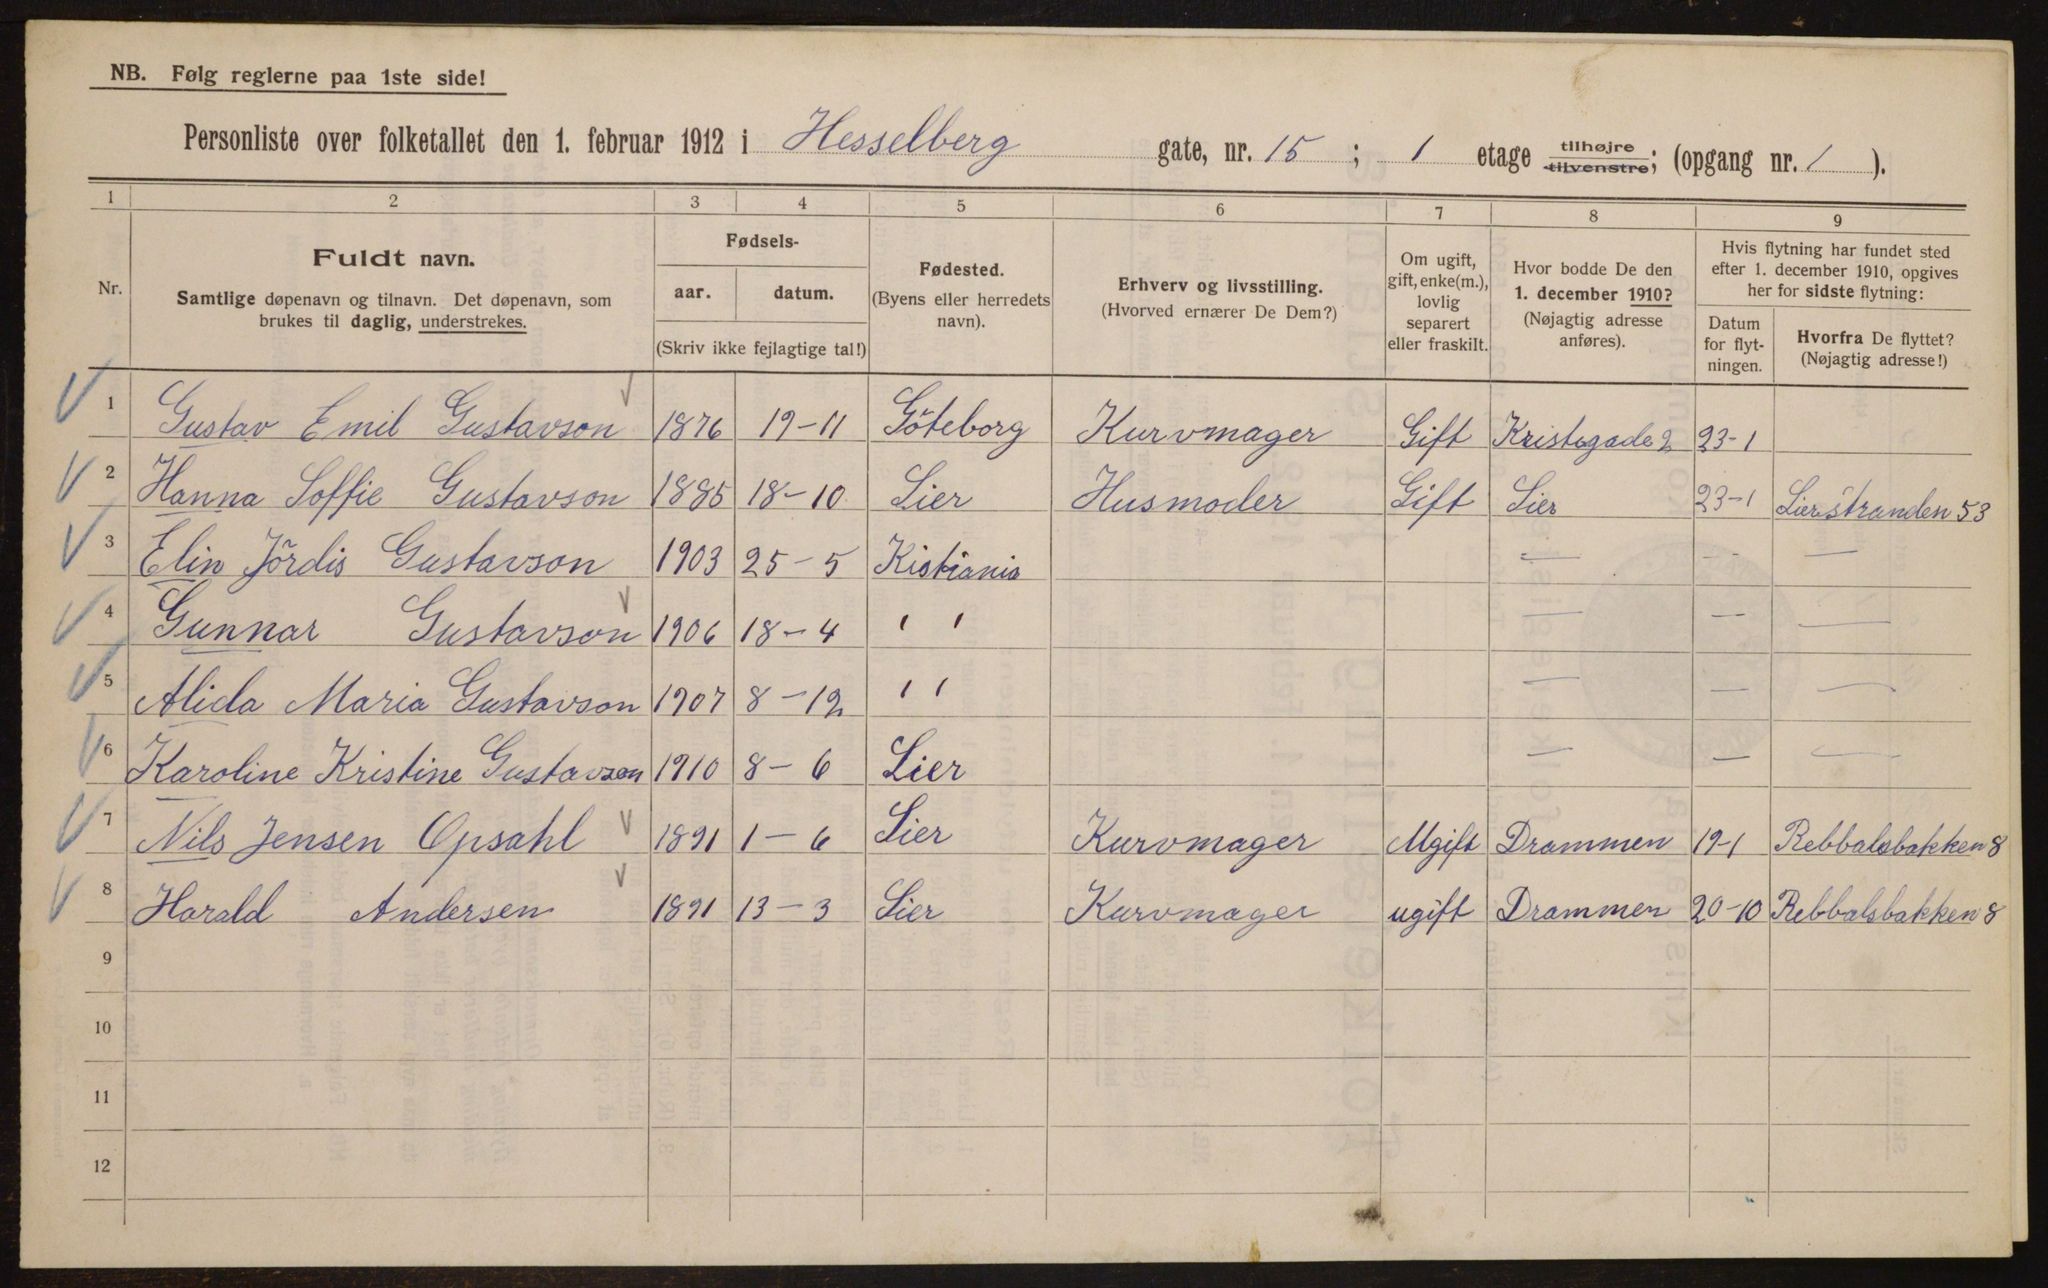 NB. Følg reglerne paa 1ste side!
Personliste over folketallet den 1. februar 1912 i Hesselberg gate, nr. 15 ; 1 etage tilhøjre tilvenstre; (opgang nr. 1 ).
1 2 3 4 5 6 7 8 9
Nr.
Fuldt navn.
Samtlige døpenavn og tilnavn. Det døpenavn, som
brukes til daglig, understrekes.
Fødsels-
aar. datum.
(Skriv ikke fejlagtige tal!)
Fødested.
(Byens eller herredets
navn).
Erhverv og livsstilling.
(Hvorved ernærer De Dem?)
Om ugift,
gift, enke(m.),
lovlig
separert
eller fraskilt.
Hvor bodde De den
1. december 1910?
(Nøjagtig adresse
anføres).
Hvis flytning har fundet sted
efter 1. december 1910, opgives
her for sidste flytning:
Datum
for flyt-
ningen.
Hvorfra De flyttet?
(Nøjagtig adresse!)
1 Gustav Emil Gustavson 1876 19-11 Göteborg Kurvmager Gift Kristsgade 2 23-1
2 Hanna Soffie Gustavson 1885 18-10 Lier Husmoder Gift Lier 23-1 Lierstranden 53
3 Elin Jördis Gustavson 1903 25-5 Kistiania — — —
4 Gunnar Gustavson 1906 18-4 " — — —
5 Alida Maria Gustavson 1907 8-12 " — — —
6 Karoline Kristine Gustavson 1910 8-6 Lier — — —
7 Nils Jensen Opsahl 1891 1-6 Lier Kurvmager Ugift Drammen 19-1 Rebbalsbakken 8
8 Harald Andersen 1891 13-3 Lier Kurvmager ugift Drammen 20-10 Rebbalsbakken 8
9
10
11
12